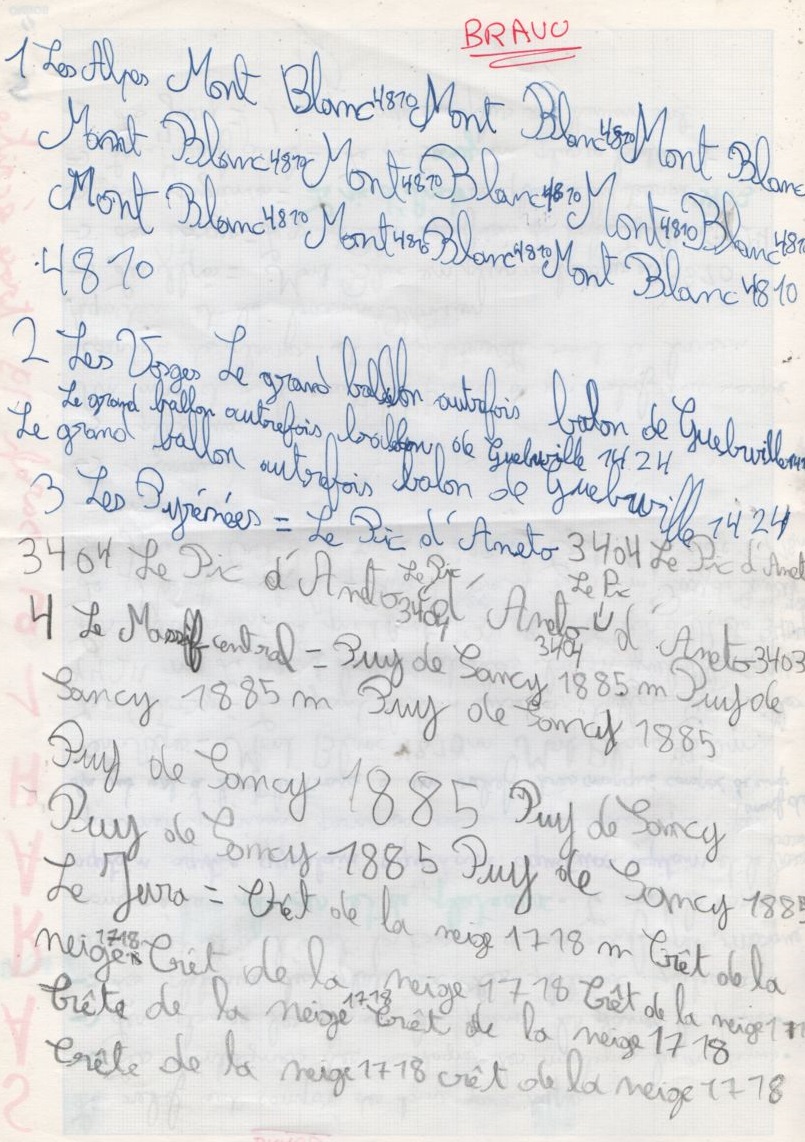 BRAVO
1 Les Alpes Mont Blanc 4810 Mont Blanc 4810 Mont Blanc
Mont Blanc 4810 Mont 4810 Blanc 4810 Mont 4810 Blanc 4810
Mont Blanc 4810 Mont 4810 Blanc 4810 Mont Blanc 4810
4810
2 Les Vosges Le grand ballon autrefois balon de Guebwiller
Le grand ballon autrefois de Guebwille 1424
Le grand ballon autrefois balon de Guebwille 1424
3 Les Pyrénées = Le Pic d'Aneto 3404 Le Pic d'Anet
3404 Le Pic d'Aneto 3404 Le Pic d'Aneto 3404 Le Pic d'Aneto 3403
4 Le Massif central = Puy de Sancy 1885 m Puy de
Sancy 1885 m Puy de Sancy 1885
Puy de Sancy 1885 Puy de Sancy
Puy de Sancy 1885 Puy de Sancy 1885
Le Jura = Crêt de la neige 1718 m Crêt de la
neige 1718 Crêt de la neige 1718 Crêt de la neige 171
Crête de la neige 1718 Crêt de la neige 1718
Crête de la neige 1718 crêt de la neige 1718